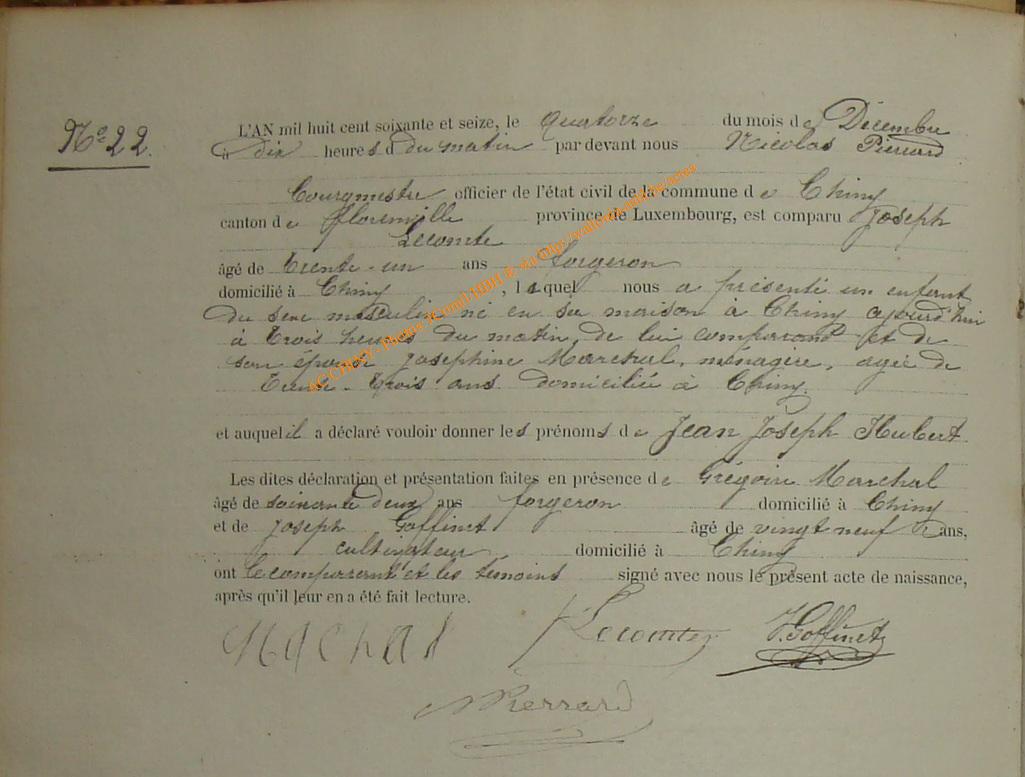 No 22.
L'AN mil huit cent soixante et seize, le quatorze du mois de Décembre
à dix heures d du matin par devant nous Nicolas Pierrard
Bourgmestre officier de l'état civil de la commune de Chiny
canton de florenville province de Luxembourg, est comparu Joseph
Lecomte
âgé de Trente-un ans forgeron
domicilié à Chiny, lequel nous a présenté un enfant
du sexe masculin né en sa maison à Chiny ajourd'hui
à Trois heures du matin, de lui comparant et de
son épouse Josephine Marchal, ménagère, agée de
Trente-Trois ans domiciliée à Chiny.
et auquel il a déclaré vouloir donner les prénoms de Jean Joseph Hubert
Les dites déclaration et présentation faites en présence de Grégoire Marchal
âgé de soixante deux ans forgeron domicilié à Chiny
et de Joseph Goffinet âgé de vingt neuf ans,
cultivateur domicilié à Chiny
ont le comparrant et les temoins signé avec nous le présent acte de naissance,
après qu'il leur en a été fait lecture.
Machal Lecomte J. Goffinet
NPierrard
AC CHINY - Photie